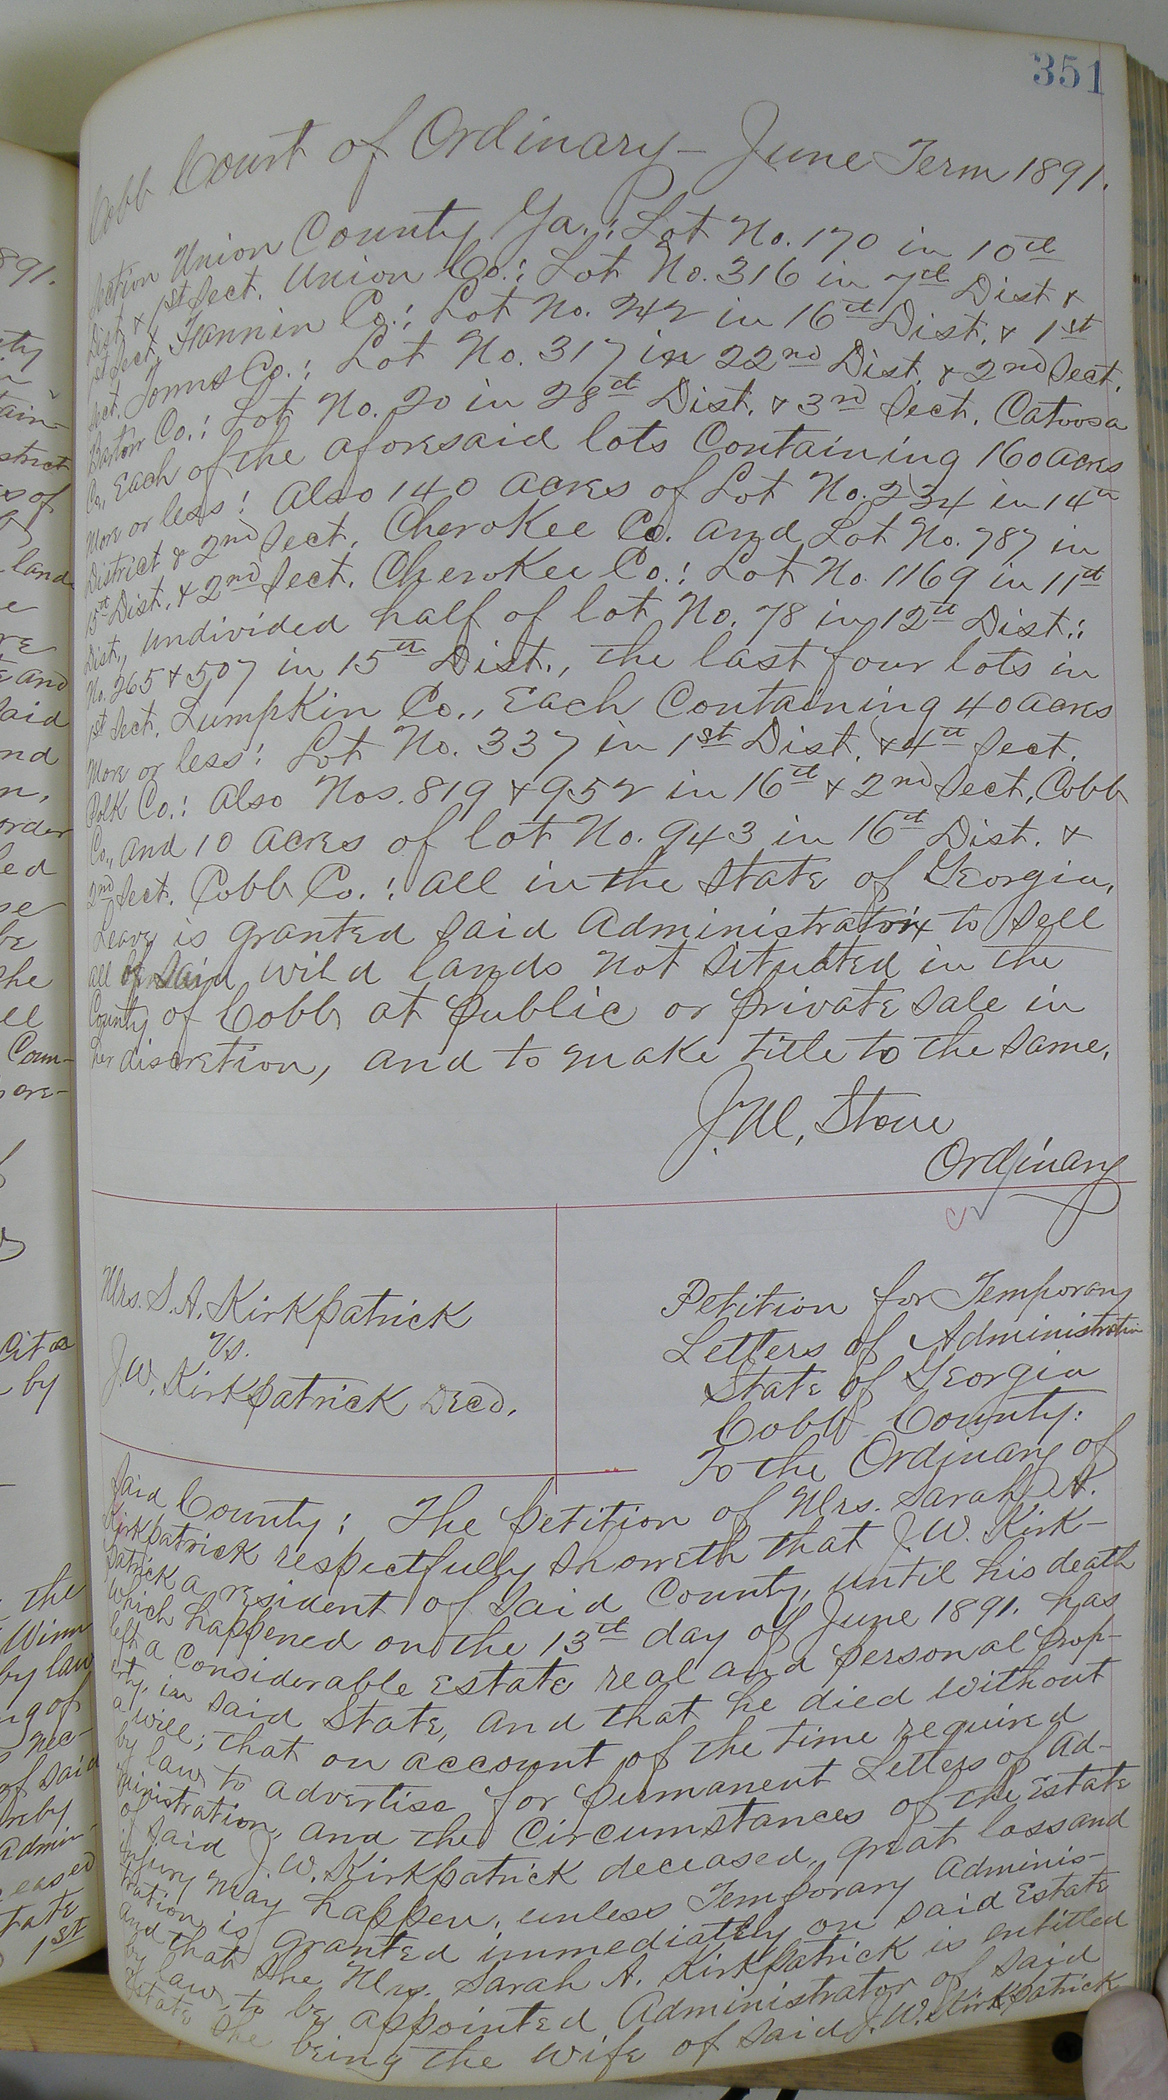 351
Cobb Court of Ordinary - June Term 1891.
Section Union County Ga.; Lot No. 170 in 10th
Dist & 1st Sect. Union Co.: Lot No. 316 in 7th Dist &
1st Sect. Fannin Co.: Lot No. 242 in 16th Dist. & 1st
Sect. Towns Co.: Lot No. 317 in 22nd Dist. & 2nd Sect.
Bartow Co.: Lot No. 20 in 28th Dist. & 3rd Sect. Catoosa
Co, Each of the aforesaid lots Containing 160 acres
More or less: Also 140 acres of Lot No. 234 in 14th
District & 2nd Sect. Cherokee Co. and Lot No. 787 in
15th Dist. & 2nd Sect. Cherokee Co.: Lot No. 1169 in 11th
Dist., undivided half of lot No. 78 in 12th Dist.:
No. 265 & 507 in 15th Dist., the last four lots in
1st Sect. Lumpkin Co., Each Containing 40 acres
More or less: Lot No. 337 in 1st Dist. & 4th Sect.
Polk Co.: Also Nos. 819 & 952 in 16th & 2nd Sect, Cobb
Co., and 10 acres of lot No. 943 in 16th Dist. &
2nd Sect. Cobb Co.: all in the State of Georgia.
Leave is granted said Administratrix to sell
all of said wild lands not situated in the
County of Cobb, at public or private sale in
her discretion, and to make title to the same.
J. M. Stone
Ordinary
Mrs. S. A. Kirkpatrick
vs.
J. W. Kirkpatrick Decd.
Petition for Temporary
Letters of Administration
State of Georgia
Cobb County:
To the Ordinary of
said County: The petition of Mrs. Sarah A.
Kirkpatrick respectfully showeth that J. W. Kirk-
patrick a resident of Said County, until his death
which happened on the 13th day of June 1891. has
left a considerable Estate real and personal prop-
erty, in said State, and that he died without
a will; that on account of the time required
by law to advertise for permanent Letters of Ad-
ministration, and the Circumstances of the Estate
of said J. W. Kirkpatrick deceased, great loss and
injury may happen, unless Temporary Adminis-
tration is granted immediately on said Estate
and that she Mrs. Sarah A. Kirkpatrick is entitled
by law to be appointed Administrator of said
Estate she being the wife of said J. W. Kirkpatrick